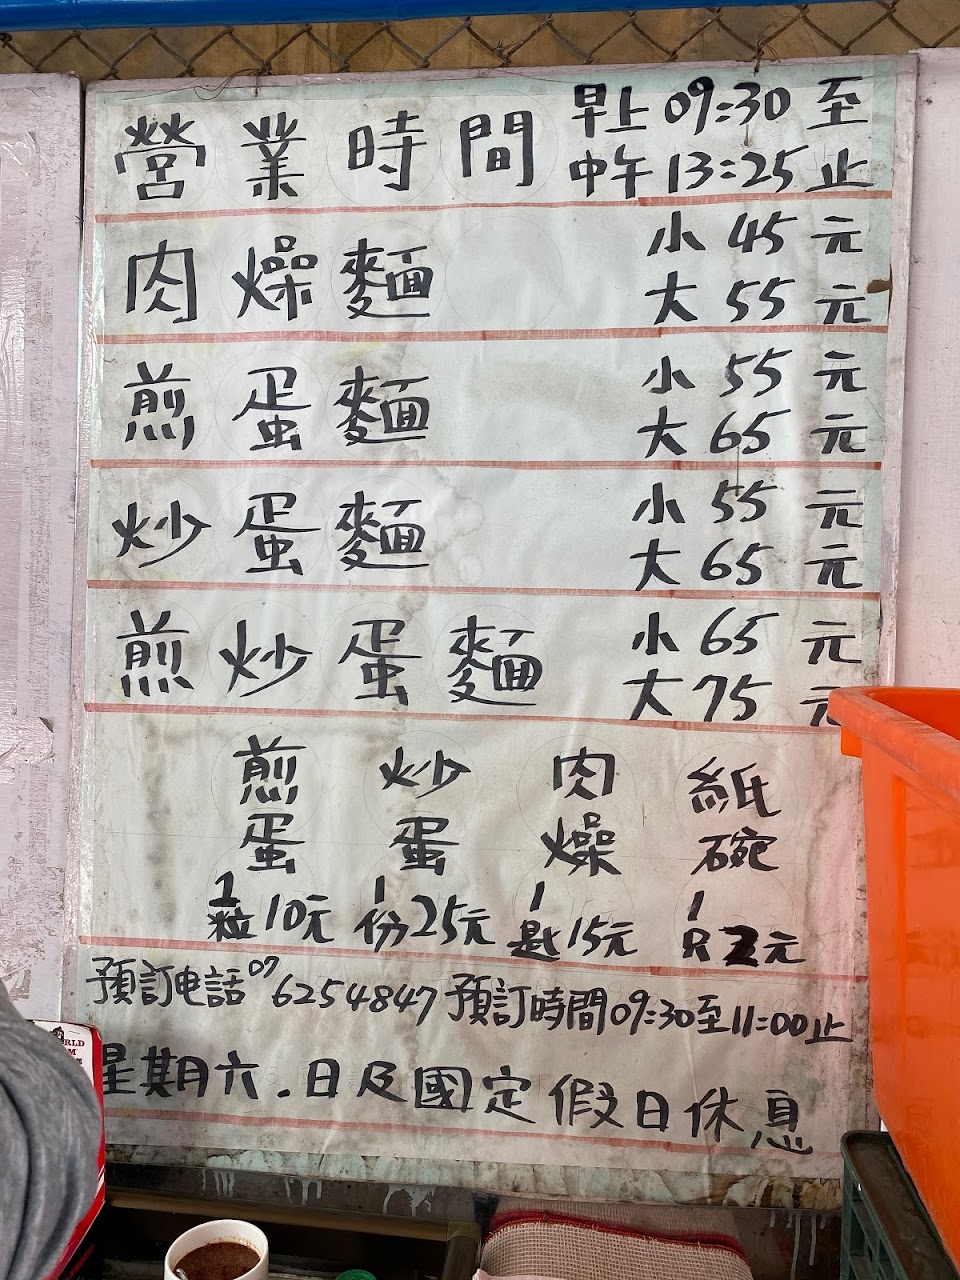 營業時間 早上09:30至
中午13:25止
肉燥麵 小45元
大55元
煎蛋麵 小55元
大65元
炒蛋麵 小55元
大65元
煎炒蛋麵 小65元
大75元
煎蛋 炒蛋 肉燥 紙碗
1粒10元 1份25元 1匙15元 1R2元
預訂电話07 6254847 預訂時間09:30至11:00止
星期六.日及國定假日休息
RLD